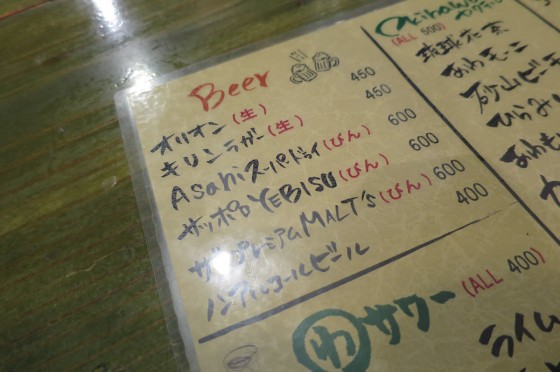 Beer
オリオン(生) 450
キリンラガー(生) 450
Asahiスーパードライ(びん) 600
サッポロYEBISU(びん) 600
ザ・プレミアムMALT'S(びん) 600
ノンアルコールビール 400
わ サワー (ALL 400)
ライム
Okinawa
カクテル
(ALL 500)
琉球
あわモーニ
砂山ビー
ひらみ
あわも